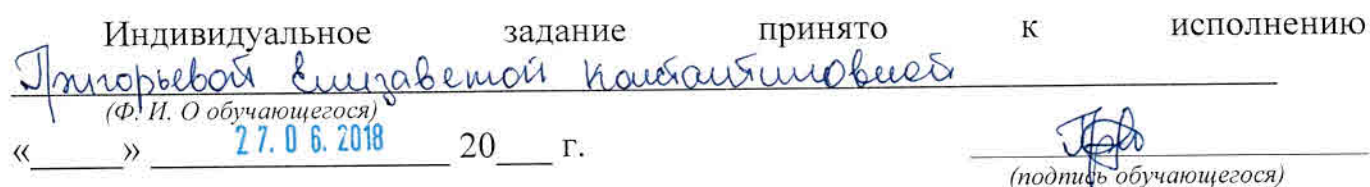 Индивидуальное задание принято к исполнению
Григорьевой Елизаветой Константиновной
(Ф. И. О обучающегося)
«______» 27.06.2018 20___ г.
(подпись обучающегося)